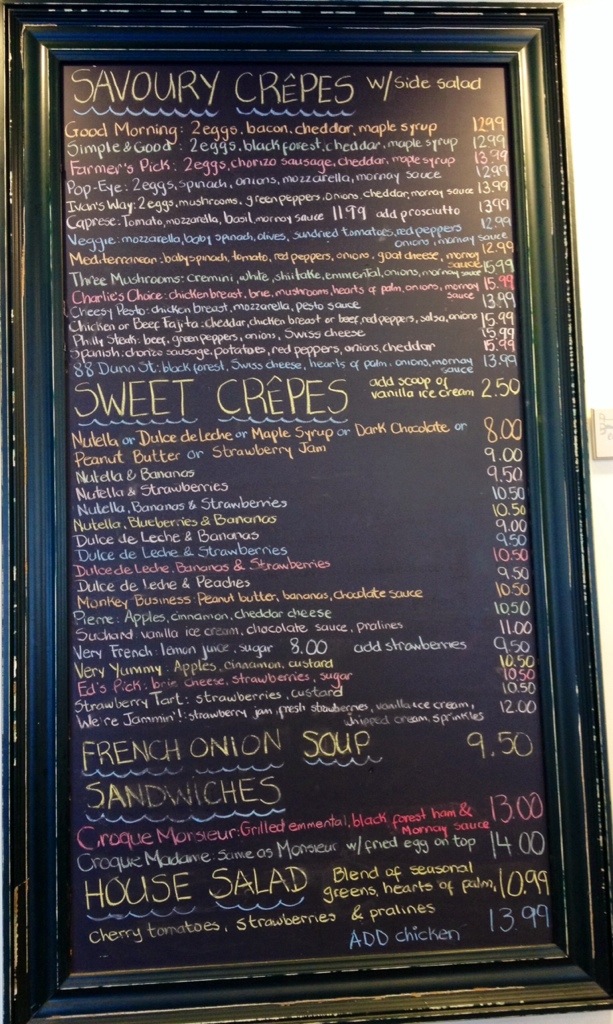 SAVOURY CRÊPES w/side salad
Good Morning: 2eggs, bacon, cheddar, maple syrup 1299
Simple & Good: 2eggs, blackforest, cheddar, maple syrup 1299
Farmer's Pick: 2eggs, chorizo sausage, cheddar, maple syrup 13.99
Pop-Eye: 2eggs, spinach, onions, mozzarella, mornay sauce 1299
Ivan's Way: 2eggs, mushrooms, green peppers, onions, cheddar, mornay sauce 13.99
Caprese: Tomato, mozzarella, basil, mornay sauce 1199 add prosciutto 1399
Veggie: mozzarella, baby spinach, olives, sundried tomatoes, red peppers 12.99
onions, mornay sauce
Mediterranean: baby spinach, tomato, red peppers, onions, goat cheese, mornay 12.99
sauce
Three Mushrooms: cremini, white, shiitake, emmental, onions, mornay sauce 15.99
Charlie's Choice: chicken breast, brie, mushrooms, hearts of palm, onions, mornay 15.99
sauce
Cheesy Pesto: chicken breast, mozzarella, pesto sauce 13.99
Chicken or Beef Fajita: cheddar, chicken breast or beef, red peppers, salsa, onions 15.99
Philly Steak: beef, green peppers, onions, Swiss cheese 15.99
Spanish: chorizo sausage, potatoes, red peppers, onions, cheddar 15.99
88 Dunn St: black forest, Swiss cheese, hearts of palm, onions, mornay 13.99
sauce
SWEET CRÊPES add scoop of
vanilla ice cream 2.50
Nutella or Dulce de Leche or Maple Syrup or Dark Chocolate or 8.00
Peanut Butter or Strawberry Jam
Nutella & Bananas 9.00
Nutella & Strawberries 9.50
Nutella, Bananas & Strawberries 10.50
Nutella, Blueberries & Bananas 10.50
Dulce de Leche & Bananas 9.00
Dulce de Leche & Strawberries 9.50
Dulce de Leche, Bananas & Strawberries 10.50
Dulce de Leche & Peaches 9.50
Monkey Business: Peanut butter, bananas, chocolate sauce 10.50
Pierre: Apples, cinnamon, cheddar cheese 10.50
Suchard vanilla ice cream, chocolate sauce, pralines 11.00
Very French: lemon juice, sugar 8.00 add strawberries 9.50
Very Yummy: Apples, cinnamon, custard 10.50
Ed's Pick: brie cheese, strawberries, sugar 10.50
Strawberry Tart: strawberries, custard 10.50
We're Jammin'!: strawberry jam, fresh strawberries, vanilla ice cream, 12.00
whipped cream, sprinkles
FRENCH ONION SOUP 9.50
SANDWICHES
Croque Monsieur: Grilled emmental, black forest ham & 13.00
Mornay sauce
Croque Madame: same as Monsieur w/fried egg on top 14.00
HOUSE SALAD Blend of seasonal
greens, hearts of palm, 10.99
cherry tomatoes, strawberries & pralines
ADD chicken 13.99